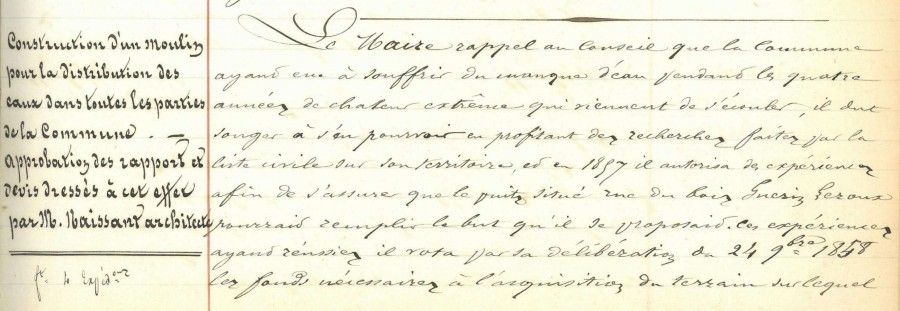 Construction d'un moulin
pour la distribution des
eaux dans toutes les parties
de la Commune. —
Approbation des rapport et
devis dressés à cet effet
par M. Naissant architecte
Le Maire rappel au Conseil que la Commune
ayant eue à souffrir du manque d'eau pendant les quatre
années de chaleur extrême qui viennent de s'écouler, il dut
songer à s'en pourvoir en profitant des recherches faites par la
liste civile sur son territoire, et en 1857 il autorisa des expériences
afin de s'assurer que le puits situé rue du bois Guérin Leroux
pourrait remplir le but qu'il se proposait. Ces expériences
ayant réussies il vota par sa délibération du 24 9bre 1858
les fonds nécessaires à l'acquisition du terrain sur lequel